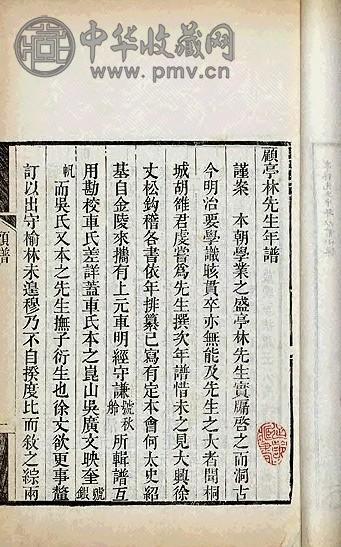 中华收藏网
www.pmv.cn
顧亭林先生年譜
謹案 本朝學業之盛亭林先生實牖啓之而洞古
今明治要學識賅貫卒亦無能及先生之大者聞桐
城胡雒君虔嘗爲先生撰次年譜惜未之見大興徐
丈松鈎稽各書依年排纂已寫有定本會何太史紹
基自金陵來攜有上元車明經守謙號秋舲所輯譜互
用勘校車氏差詳蓋車氏本之崑山吳廣文映奎號銀
帆而吳氏又本之先生撫子衍生也徐丈欲更事釐
訂以出守榆林未遑穆乃不自揆度比而敘之綜兩
顧譜